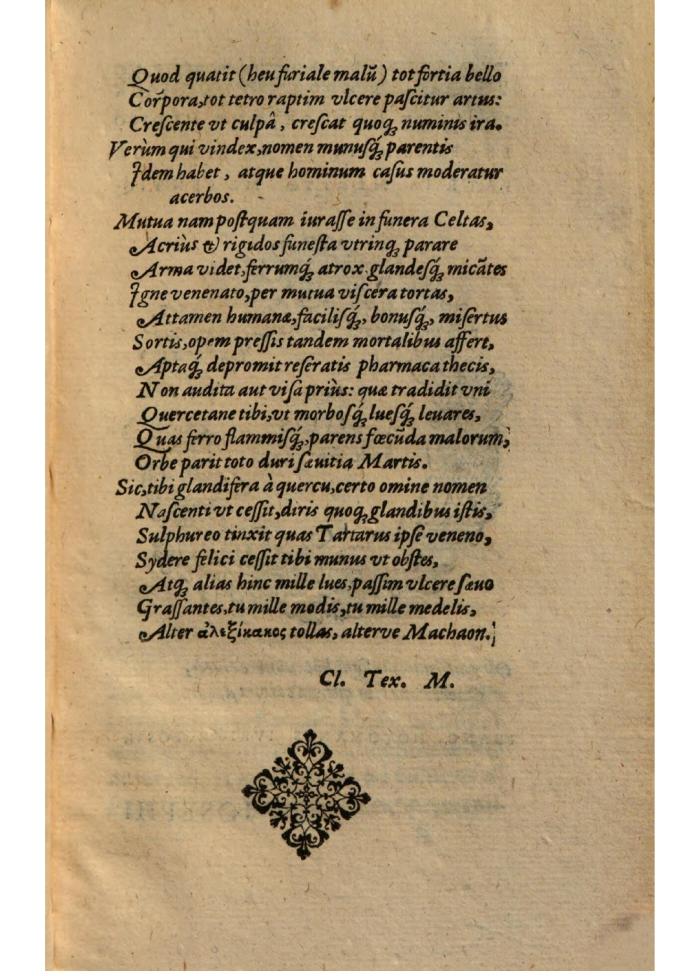 Quod quatit (heu furiale malũ) tot fortia bello
Corpora, tot tetro raptim vlcere paſcitur artus:
Creſcente vt culpâ, creſcat quoq; numinis ira.
Verùm qui vindex, nomen munuſq; parentis
Idem habet, atque hominum caſus moderatur
acerbos.
Mutua nam poſtquam iuraſſe in funera Celtas,
Acriùs & rigidos funeſta vtrinq; parare
Arma videt, ferrumq́; atrox glandeſq́; micãtes
Igne venenato, per mutua viſcera tortas,
Attamen humanæ, faciliſq́;, bonuſq́;, miſertus
Sortis, opem preſſis tandem mortalibus affert,
Aptaq́; depromit reſeratis pharmaca thecis,
Non audita aut viſa priùs: quæ tradidit vni
Quercetane tibi, vt morboſq́; lueſq́; leuares,
Quas ferro flammiſq́;, parens fœcũda malorum,
Orbe parit toto duri ſæuitia Martis.
Sic, tibi glandifera à quercu, certo omine nomen
Naſcenti vt ceſſit, diris quoq; glandibus iſtis,
Sulphureo tinxit quas Tartarus ipſe veneno,
Sydere felici ceſſit tibi munus vt obſtes,
Atq; alias hinc mille lues, paſſim vlcere ſæuo
Graſſantes, tu mille modis, tu mille medelis,
Alter ἀλεξίκακος tollas, alterve Machaon.
Cl. Tex. M.